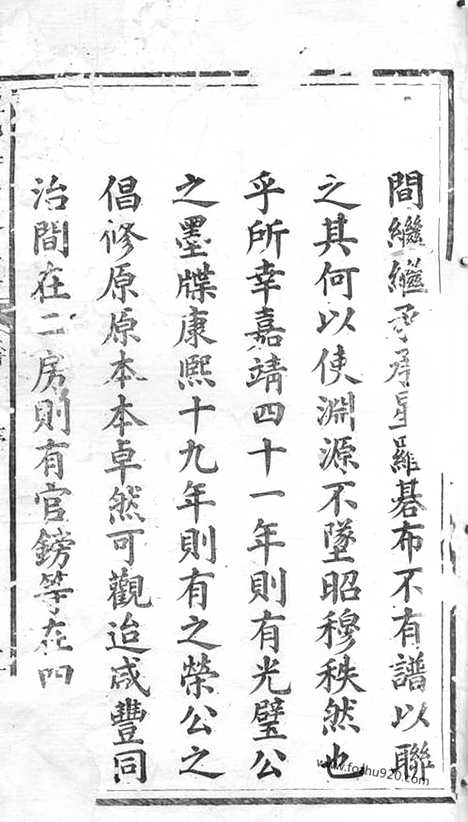 間繼繼承承星羅碁布不有譜以聯
之其何以使淵源不墜昭穆秩然也
乎所幸嘉靖四十一年則有光璧公
之墨牒康熙十九年則有之榮公之
倡修原原本本卓然可觀迨咸豐同
治間在二房則有官鎊等在四
www.fozhu920.com